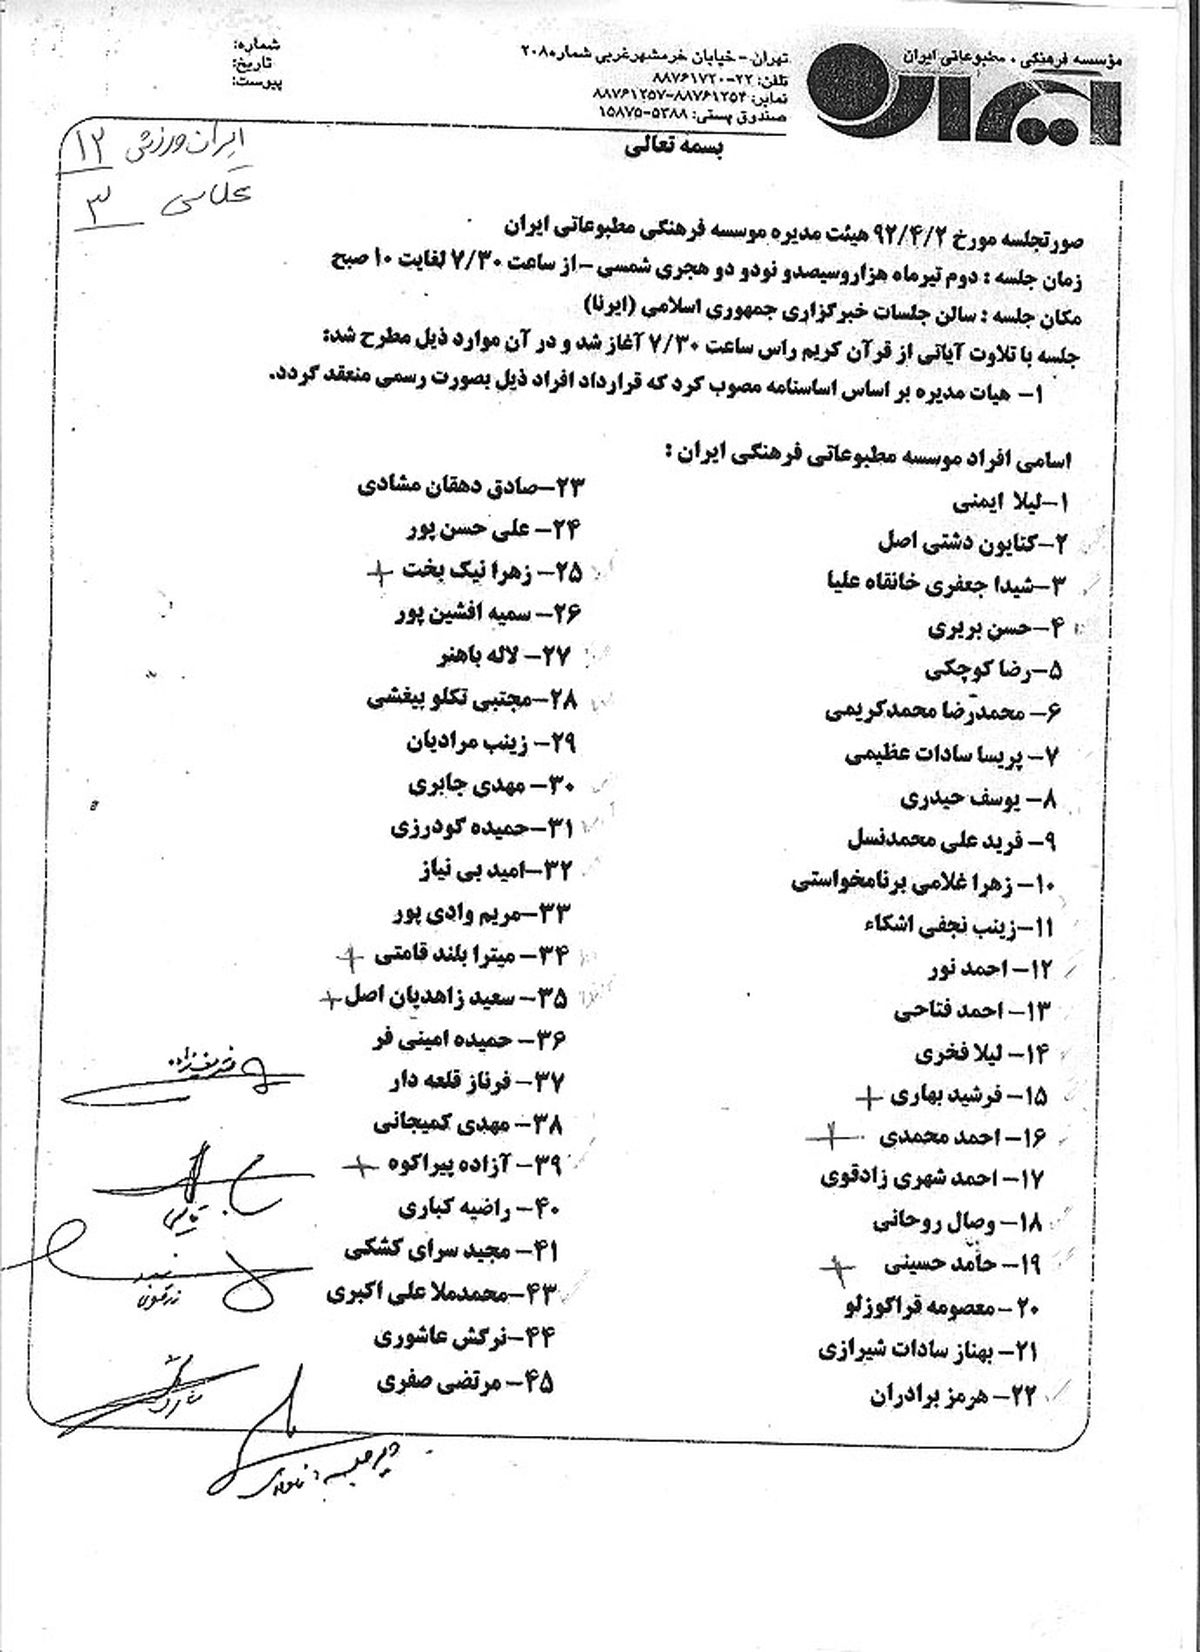 مؤسسه فرهنگی - مطبوعاتی ایران
ایران
تهران - خیابان خرمشهر غربی شماره ۲۰۸
تلفن: ۲۲-۸۸۷۶۱۷۲۰
نمابر: ۸۸۷۶۱۲۵۴-۸۸۷۶۱۲۵۷
صندوق پستی: ۵۳۸۸-۱۵۸۷۵
شماره:
تاریخ:
پیوست:
بسمه تعالی
ایران ورزشی ۱۲
عکاسی ۳
صورتجلسه مورخ ۹۲/۴/۲ هیئت مدیره موسسه فرهنگی مطبوعاتی ایران
زمان جلسه : دوم تیرماه هزاروسیصدو نودو دو هجری شمسی - از ساعت ۷/۳۰ لغایت ۱۰ صبح
مکان جلسه : سالن جلسات خبرگزاری جمهوری اسلامی (ایرنا)
جلسه با تلاوت آیاتی از قرآن کریم راس ساعت ۷/۳۰ آغاز شد و در آن موارد ذیل مطرح شد:
۱- هیات مدیره بر اساس اساسنامه مصوب کرد که قرارداد افراد ذیل بصورت رسمی منعقد گردد.
اسامی افراد موسسه مطبوعاتی فرهنگی ایران :
۱-لیلا ایمنی
۲-کتایون دشتی اصل
۳-شیدا جعفری خانقاه علیا
۴-حسن بریری
۵-رضا کوچکی
۶- محمدرضا محمدکریمی
۷- پریسا سادات عظیمی
۸- یوسف حیدری
۹- فرید علی محمدنسل
۱۰- زهرا غلامی برنامخواستی
۱۱-زینب نجفی اشکاء
۱۲- احمد نور
۱۳- احمد فتاحی
۱۴- لیلا فخری
۱۵- فرشید بهاری +
۱۶- احمد محمدی +
۱۷- احمد شهری زادقوی
۱۸- وصال روحانی
۱۹- حامد حسینی +
۲۰-معصومه قراگوزلو
۲۱- بهناز سادات شیرازی
۲۲- هرمز برادران
۲۳-صادق دهقان مشادی
۲۴- علی حسن پور
۲۵- زهرا نیک بخت +
۲۶- سمیه افشین پور
۲۷- لاله باهنر
۲۸-مجتبی تکلو بیغشی
۲۹- زینب مرادیان
۳۰- مهدی جابری
۳۱-حمیده گودرزی
۳۲-امید بی نیاز
۳۳-مریم وادی پور
۳۴- میترا بلند قامتی +
۳۵- سعید زاهدیان اصل +
۳۶- حمیده امینی فر
۳۷- فرناز قلعه دار
۳۸- مهدی کمیجانی
۳۹- آزاده پیراکوه +
۴۰- راضیه کباری
۴۱- مجید سرای کشکی
۴۳-محمدملا علی اکبری
۴۴-نرگش عاشوری
۴۵- مرتضی صفری
دبیر جلسه :